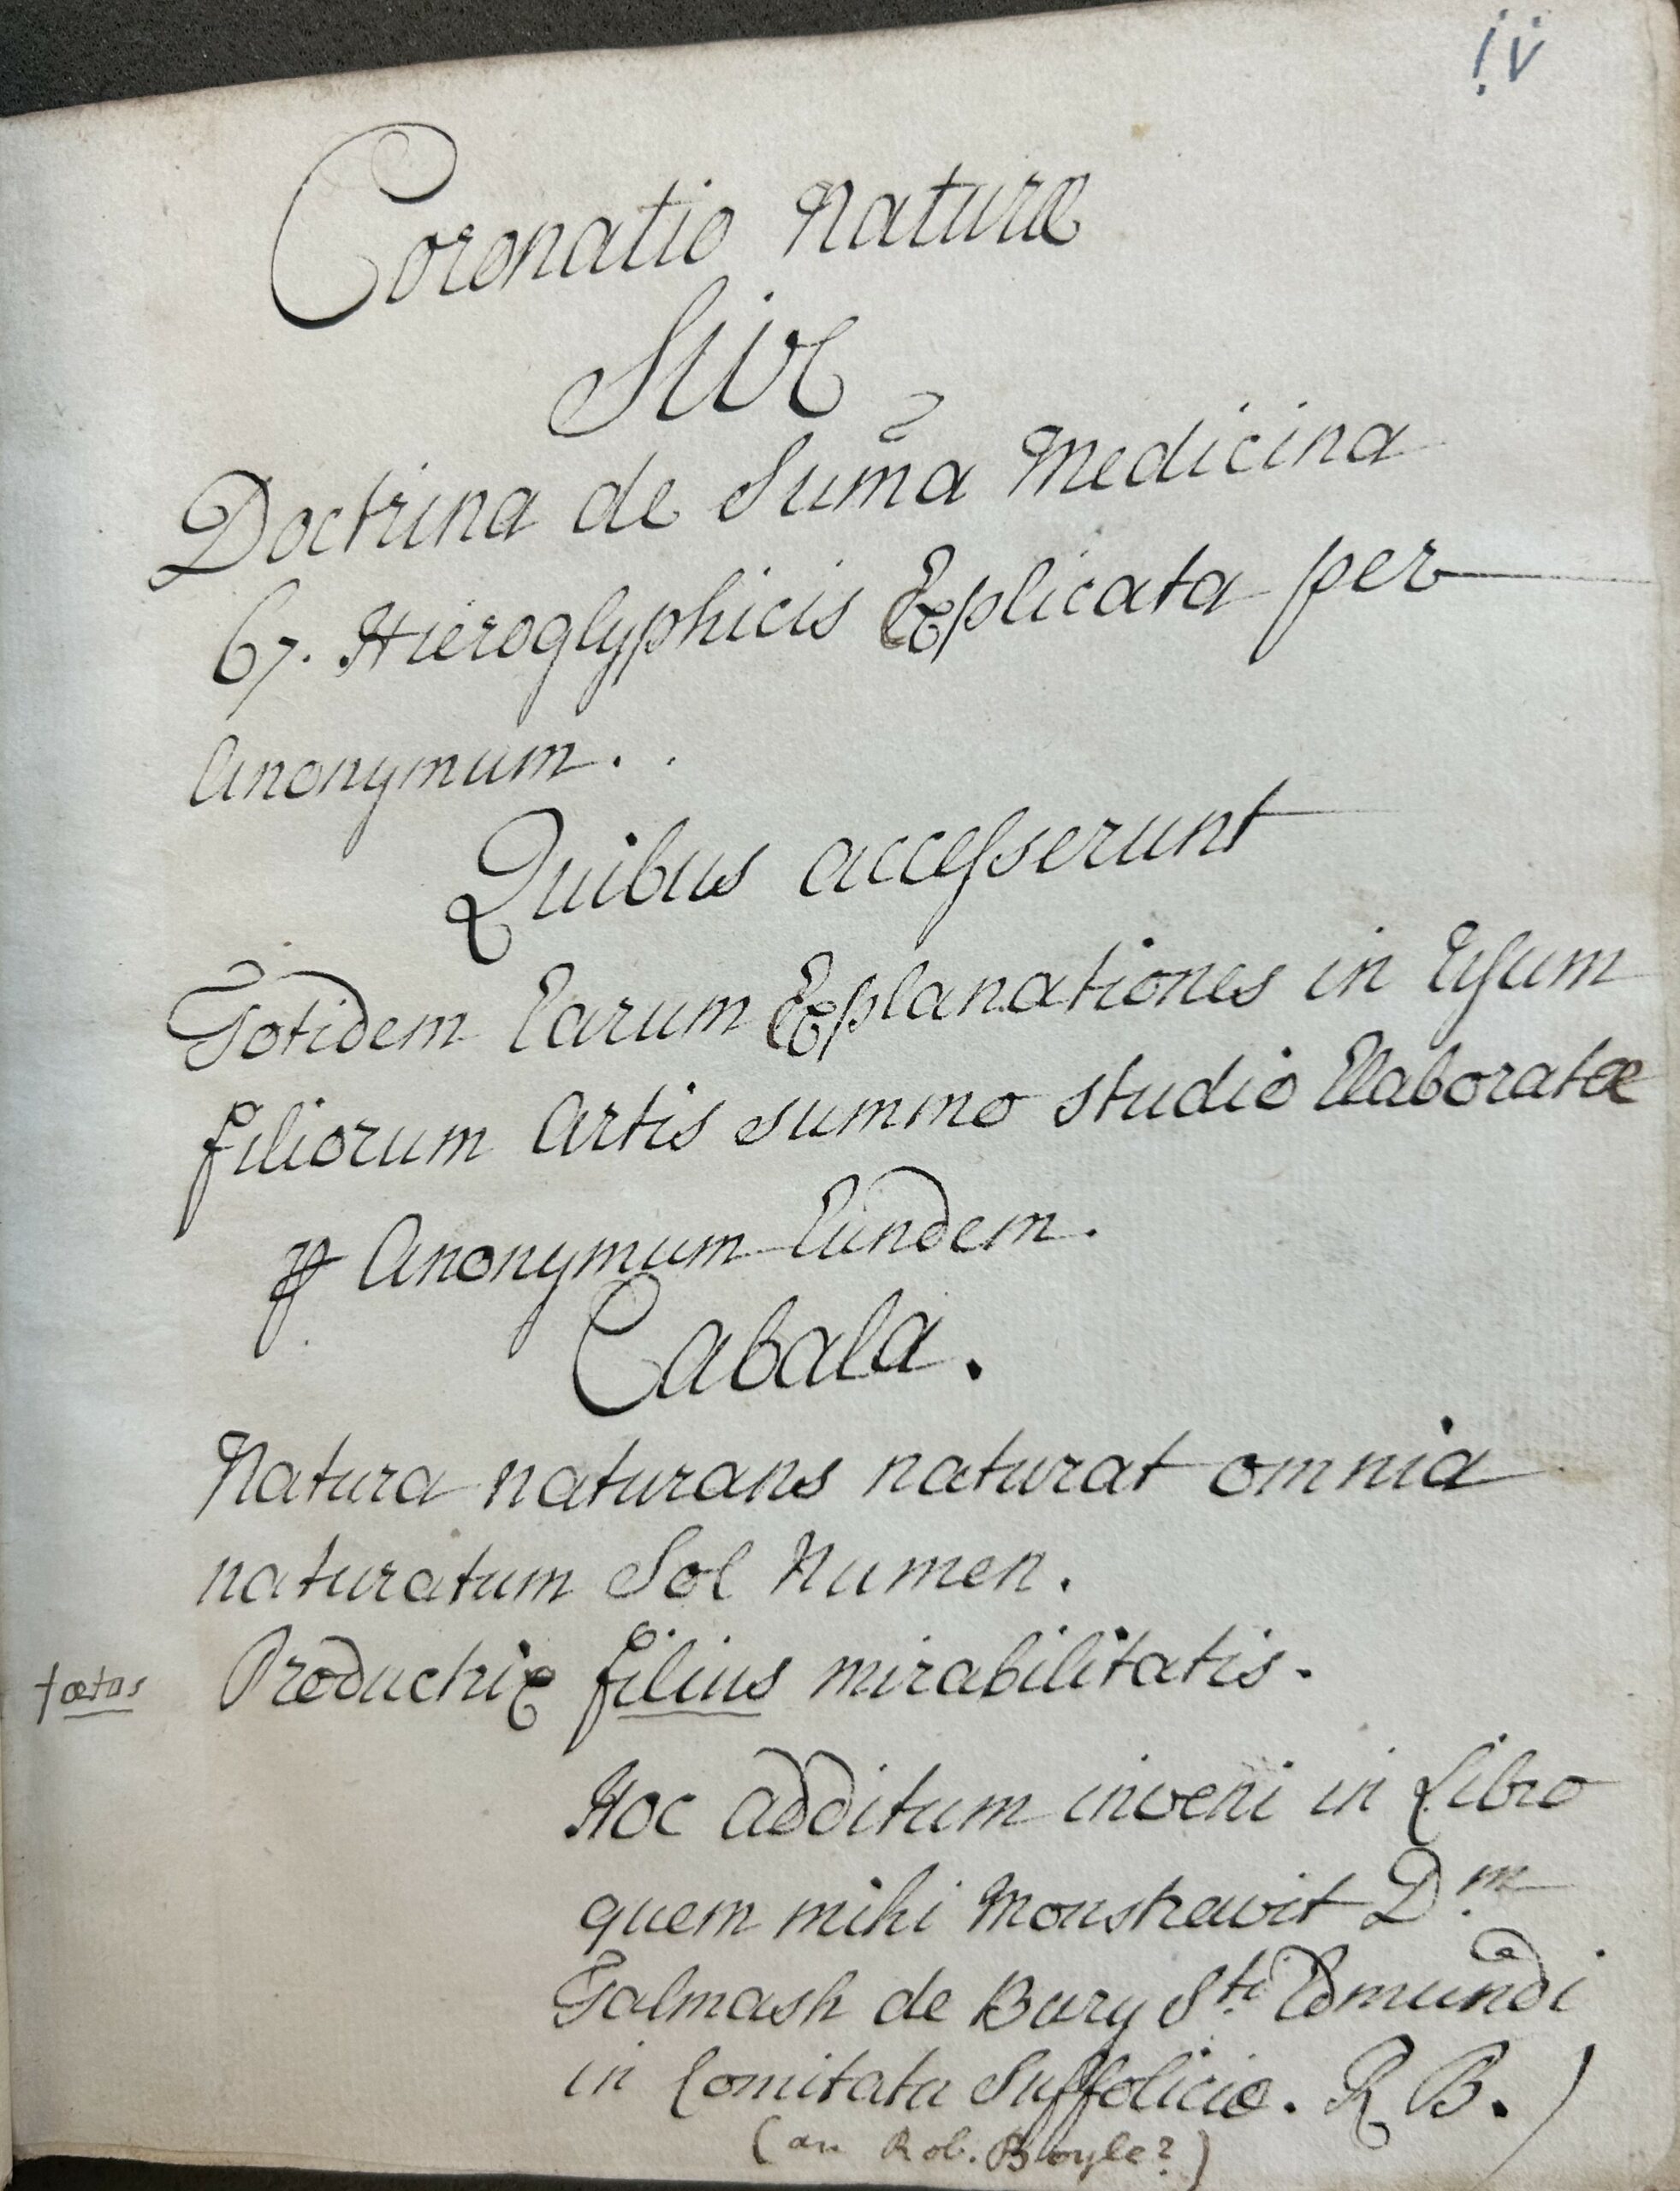 iv
Coronatio Naturæ
Sive
Doctrina de Sum̃a Medicina
67. Hieroglyphicis Explicata per
Anonymum.
Quibus accesserunt
Totidem Earum Explanationes in Usum
filiorum Artis summo studio Elaboratæ
ꝑ Anonymum Eundem.
Cabala.
Natura naturans naturat omnia
naturatum Sol Numen.
fœtus Productrix filius mirabilitatis.
Hoc additum inveni in Libro
quem mihi Monstravit D.m
Talmash de Bury S.ti Edmundi
in Comitatu Suffolicie. R B. )
(an Rob. Boyle?)